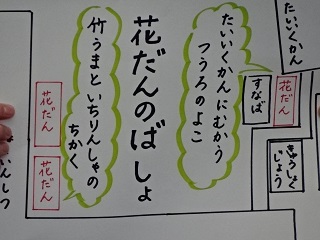 たいいくかん
花だん
すなば
きゅうしょく
じょう
たいいくかんにむかう
つうろのよこ
花だんのばしょ
竹うまといちりんしゃの
ちかく
花だん
花だん